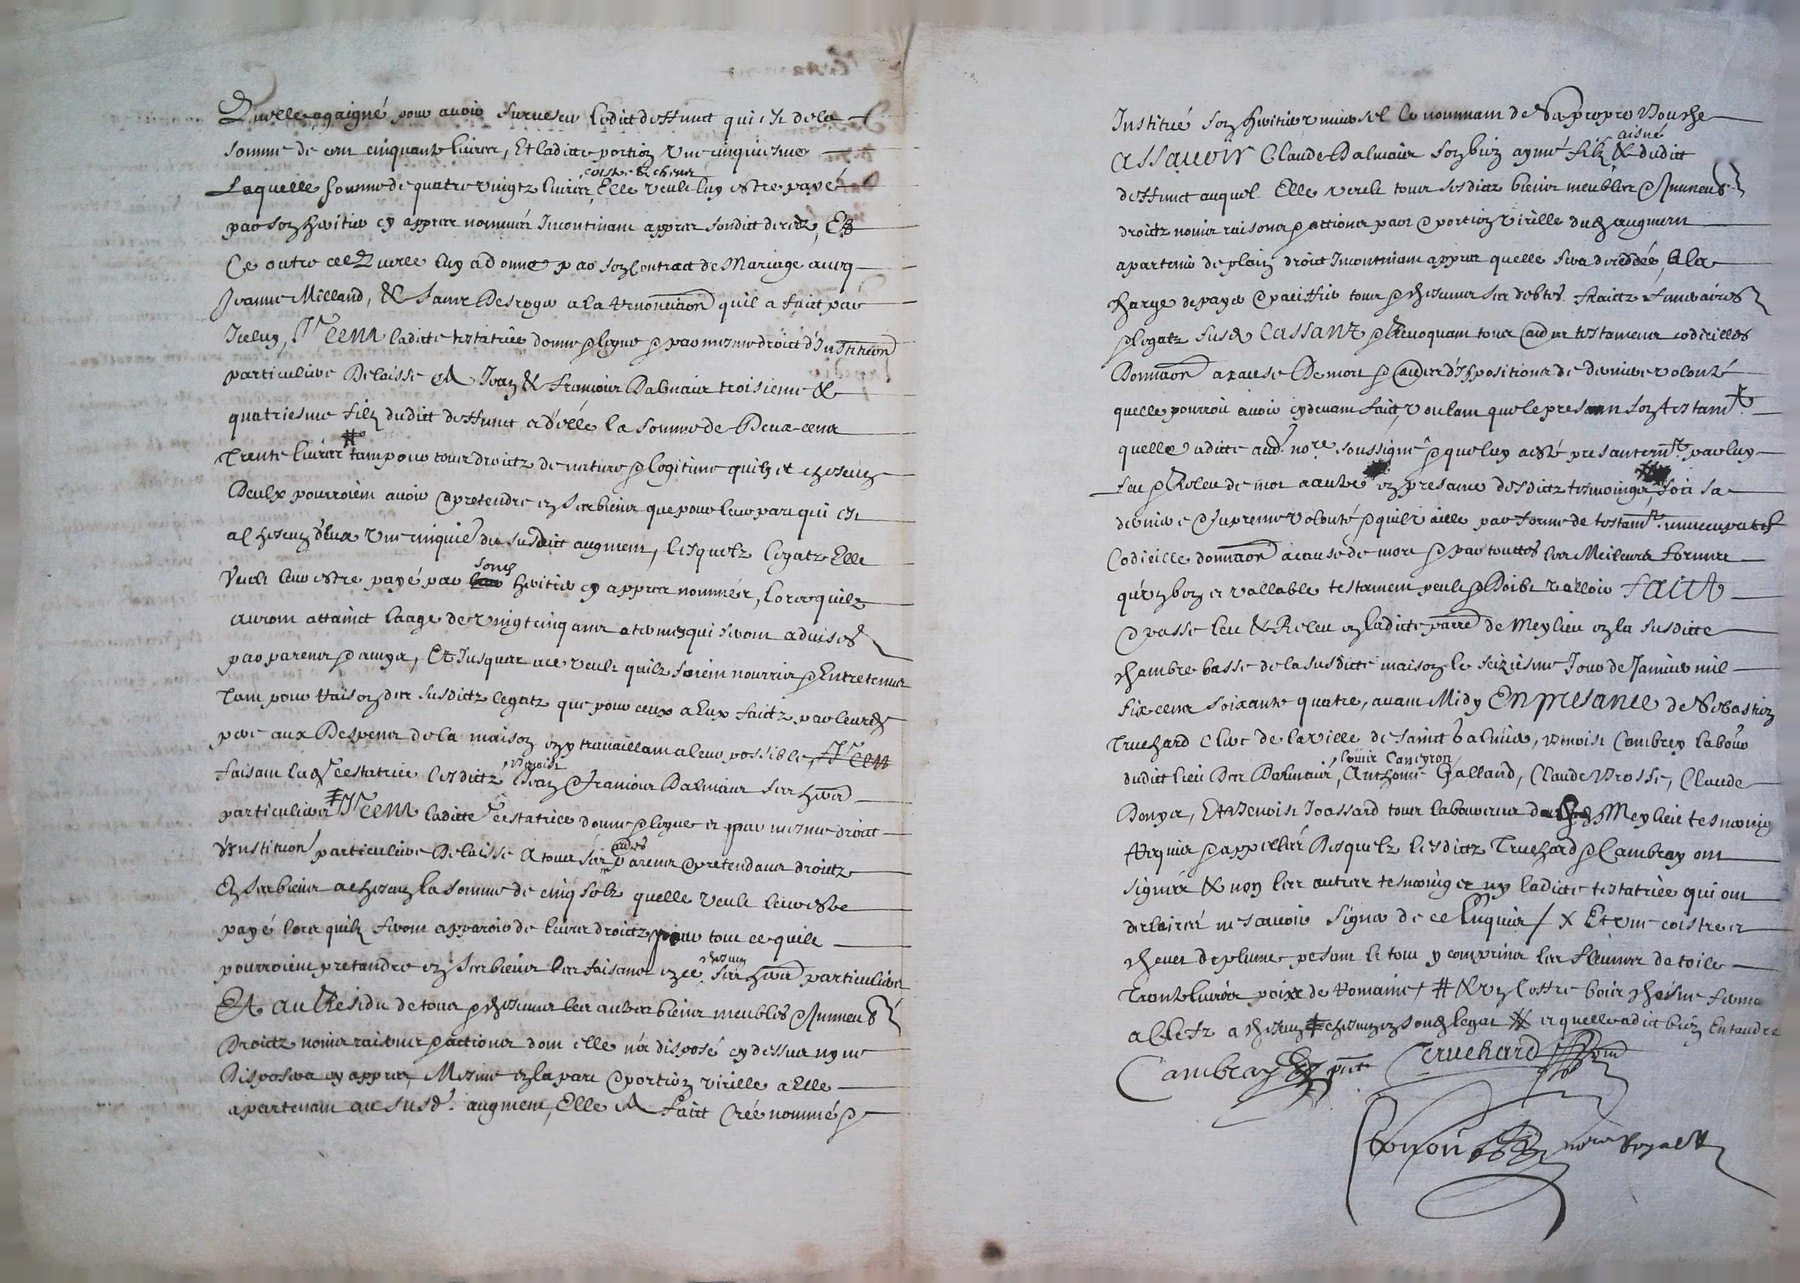 Quelle a gaigné pour avoir survescu ledict deffunct qui est de la
somme de cent cinquante livres, Et ladicte portion une cinquiesme
Laquelle somme de quatre vingtz livres, Elle veult luy estre payé
par son heritier cy appres nommés Incontinant appres sondict deces, Et
Ce outre ce quelle luy a donné par son contract de Mariage avecq
Jeanne Milland, & sans desroger a la renonciaon quil a faict par
Icelluy, Item ladicte testatrice donne & legue & par mesme droict d'Institution
particuliere Delaisse A Jean & Francois Dalmais troisieme &
quatriesme filz dudict deffunct & d'elle la somme de Deux cens
Trente livres # tant pour tous droictz de nature & legitime quilz et chescung
Deulx pourroient avoir & pretendre en ses biens que pour leur part qui est
a chescung d'eux une cinquie du susdict augment, lesquelz legatz Elle
Veult leur estre payé par sond heritier cy appres nommés, lors quilz
auront attainct l'aage de vingt cinq ans a termes qui seront advisés
par parens & amys, Et Jusques a ce veult quilz soient nourris & Entretenus
Tant pour raison des susdictz legatz que pour ceux a Eux faictz par leurd
pere aux Despens de la maison en y travaillant a leur possible,
faisant lad testatrice lesdictz Benoist Jean & Francois Dalmais ses hers
particuliers # Item ladicte testatrice donne & legue et par mesme droict
d'Institution particuliere Delaisse A tous ses autres parens & pretendans droictz
En ses biens a chescung la somme de cinq solz quelle veult leur estre
payé lors quilz feront apparoir de leurs droictz pour tout ce quilz
pourroient pretandre en ses biens les faisans en ce chescung ses hers particuliers
Et au Residu de tous & chescuns les autres biens meubles & Immeubl
Droictz noms raisons & actions dont elle n'a disposé cy dessus ny ne
Disposera cy appres, Mesme en la part & portion virille a Elle
apartenant au susd. augment, Elle A faict créé nommé &
Institué son heritier universel le nommant de sa propre Bouche
Assavoir Claude Dalmais son bien aymé filz aisné & dudict
deffunct auquel Elle veult tous sesdictz biens meubles & Immeub
droictz noms raisons & actions part & portion virille dud augment
apartenir de plain droict Incontinant appres quelle sera decedée, A la
charge de payer & satisffaire tous & chescuns ses debtes fraictz funeraires
& legatz susd Cassant & Revoquant tous autres testamens codicilles
Donnaon a cause De mort & autres dispositions de derniere volonté
quelle pourroit avoir cy devant faict, voulant que le present son Testamt
quelle a dicte aud nore soussigné & que luy a esté presantemt par luy
leu & Releu de mot a autre en presance desdictz tesmoings soit sa
derniere & supreme volonté & quil vaille par forme de testamt nuncupatif
Codicille donnaon a cause de mort & par touttes les Meileures formes
qu'un bon et vallable testament peult & Doibt valloir Faict
& passe leu & Releu en ladicte parre de Meylieu en la susdicte
chambre basse de la susdicte maison le seiziesme Jour de Janvier mil
six cens soixante quatre, avant Midy En presance de Sebastien
Truchard clerc de la ville de Sainct Galmier, Benoist Combrey labour
dudict lieu Des Dalmais, Louis Canyron, Anthoine Galland, Claude Brosse, Claude
Bonys, Et Benoist Joassard tous laboureurs de Meylieu tesmoins
Requis & appellés Desquelz lesdictz Truchard & Cambray ont
signés & non les autres tesmoings et ny ladicte testatrice qui ont
declairés ne scavoir signer de ce Enquis / X Et une coistre et
chevet de plume pesant le tout y comprins les fleines de toile
Trente livres poix de romaine / # & un coffre bois chesne fermé
a clefz a chescung # chescung en sond legat # et quelle a dict bien Entandre
Cambray pnt Truchard pnt
nore Royal